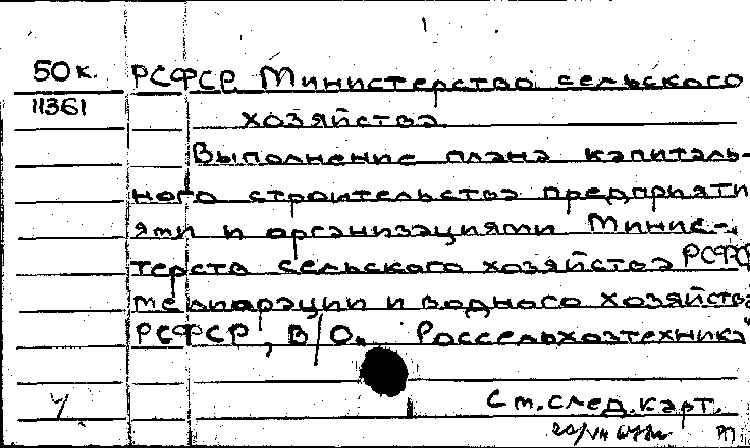 50к. РСФСР. Министерство сельского
11361 хозяйства.
Выполнение плана капиталь-
ного строительства предприяти
ями и организациями Минис-
терства сельского хозяйства РСФСР
мелиорации и водного хозяйства
РСФСР, В/О. Россельхозтехника"
См.след.карт.